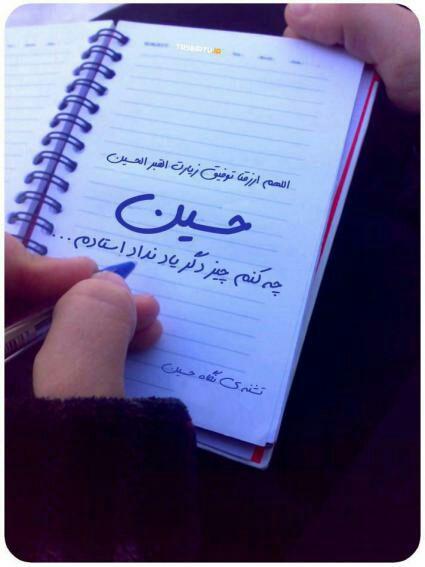 اللهم ارزقنا توفیق زیارت الحسین
حسین
چه کنم چیز دگر یاد نداد استادم ...
تشنه ی نگاه حسین